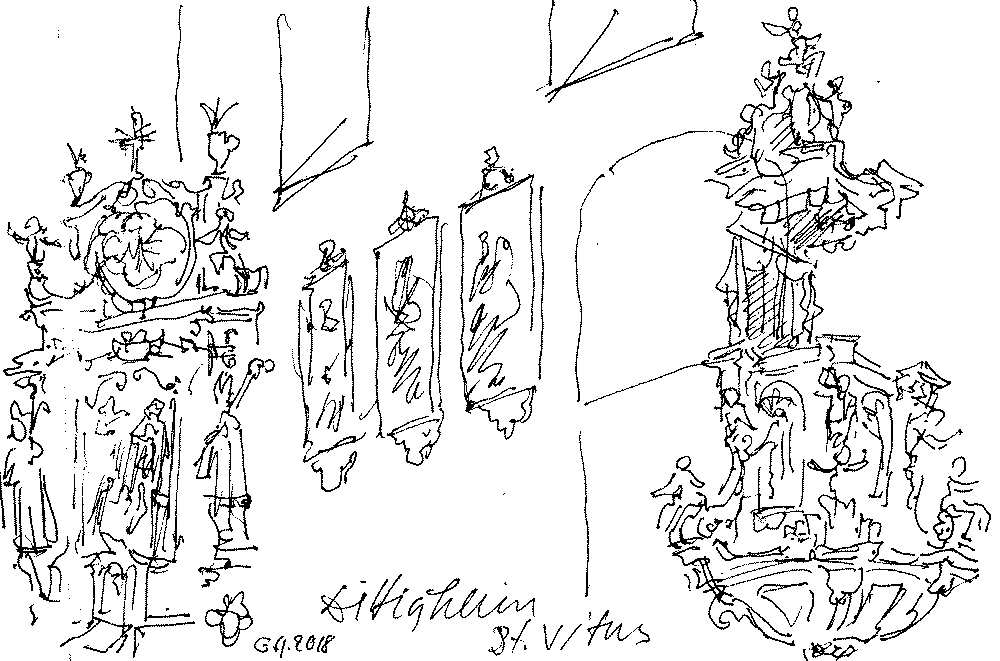 Dittigheim
St. Vitus
GA.2018